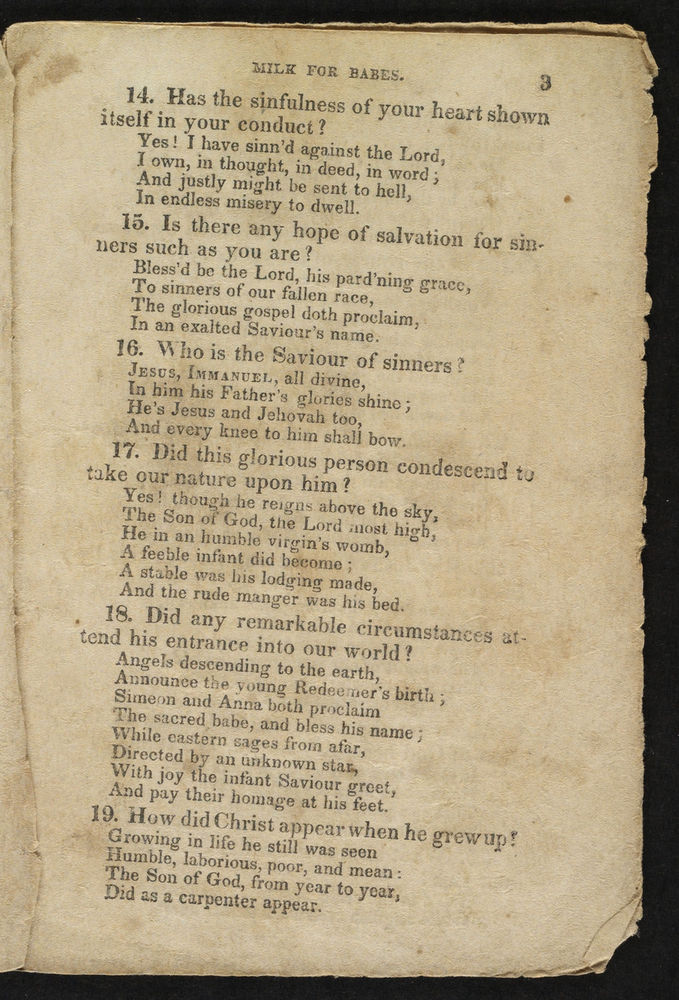 MILK FOR BABES. 3
14. Has the sinfulness of your heart shown
itself in your conduct?
Yes! I have sinn'd against the Lord,
I own, in thought, in deed, in word;
And justly might be sent to hell,
In endless misery to dwell.
15. Is there any hope of salvation for sin-
ners such as you are?
Bless'd be the Lord, his pard'ning grace,
To sinners of our fallen race,
The glorious gospel doth proclaim,
In an exalted Saviour's name.
16. Who is the Saviour of sinners?
JESUS, IMMANUEL, all divine,
In him his Father's glories shine;
He's Jesus and Jehovah too,
And every knee to him shall bow.
17. Did this glorious person condescend to
take our nature upon him?
Yes! though he reigns above the sky,
The Son of God, the Lord most high,
He in an humble virgin's womb,
A feeble infant did become;
A stable was his lodging made,
And the rude manger was his bed.
18. Did any remarkable circumstances at-
tend his entrance into our world?
Angels descending to the earth,
Announce the young Redeemer's birth;
Simeon and Anna both proclaim
The sacred babe, and bless his name;
While eastern sages from afar,
Directed by an unknown star,
With joy the infant Saviour greet,
And pay their homage at his feet.
19. How did Christ appear when he grew up?
Growing in life he still was seen
Humble, laborious, poor, and mean:
The Son of God, from year to year,
Did as a carpenter appear.